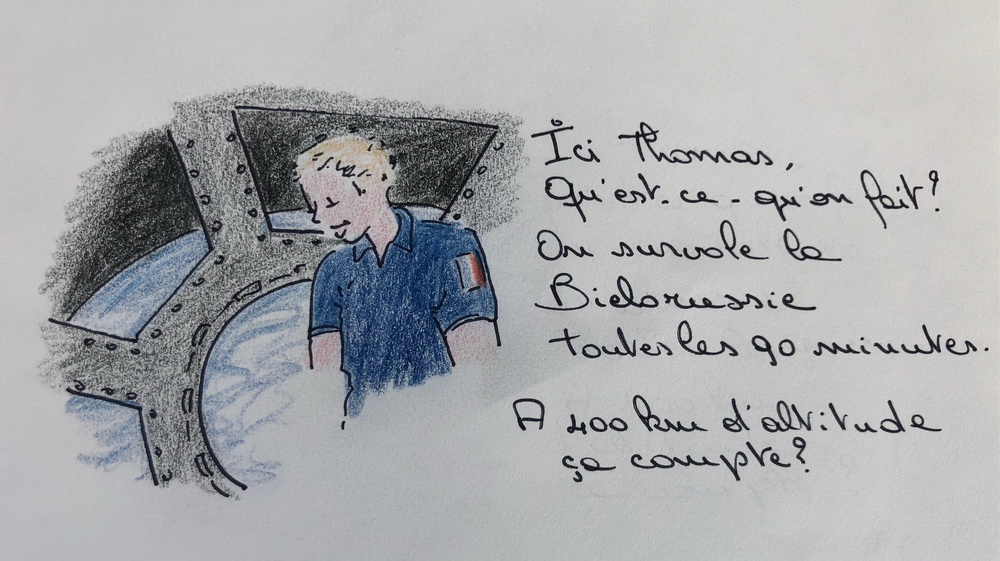 Ici Thomas,
Qu'est-ce-qu'on fait?
On survole la
Bielorussie
toutes les 90 minutes.
A 400 km d'altitude
ça compte?